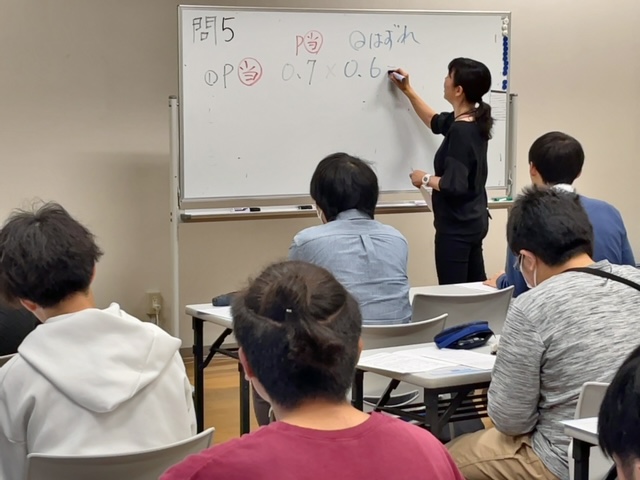 問5
P当 ②はずれ
①P当 0.7×0.6